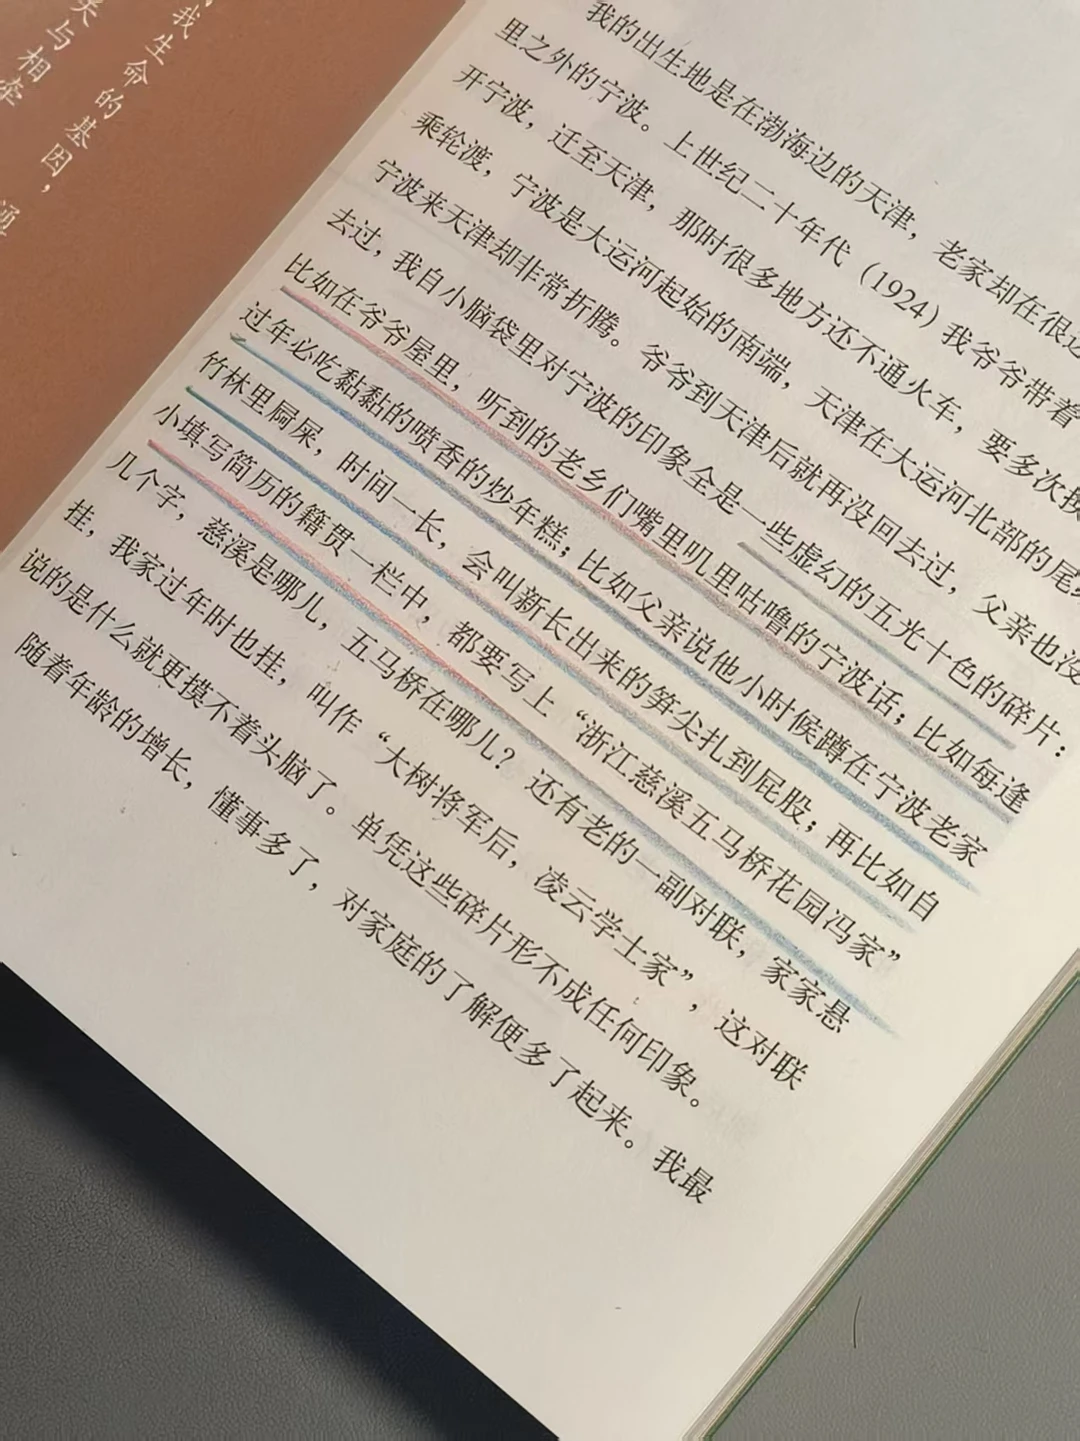 我生命的基因，
与相牵
我的出生地是在渤海边的天津，老家却在很
里之外的宁波。上世纪二十年代（1924）我爷爷带着
开宁波，迁至天津，那时很多地方还不通火车，要多次换
乘轮渡，宁波是大运河起始的南端，天津在大运河北部的尾
宁波来天津却非常折腾。爷爷到天津后就再没回去过，父亲也没
去过，我自小脑袋里对宁波的印象全是一些虚幻的五光十色的碎片：
比如在爷爷屋里，听到的老乡们嘴里叽里咕噜的宁波话；比如每逢
过年必吃黏黏的喷香的炒年糕；比如父亲说他小时候蹲在宁波老家
竹林里屙屎，时间一长，会叫新长出来的笋尖扎到屁股；再比如自
小填写简历的籍贯一栏中，都要写上“浙江慈溪五马桥花园冯家”
几个字，慈溪是哪儿，五马桥在哪儿？还有老的一副对联，家家悬
挂，我家过年时也挂，叫作“大树将军后，凌云学士家”，这对联
说的是什么就更摸不着头脑了。单凭这些碎片形不成任何印象。
随着年龄的增长，懂事多了，对家庭的了解便多了起来。我最